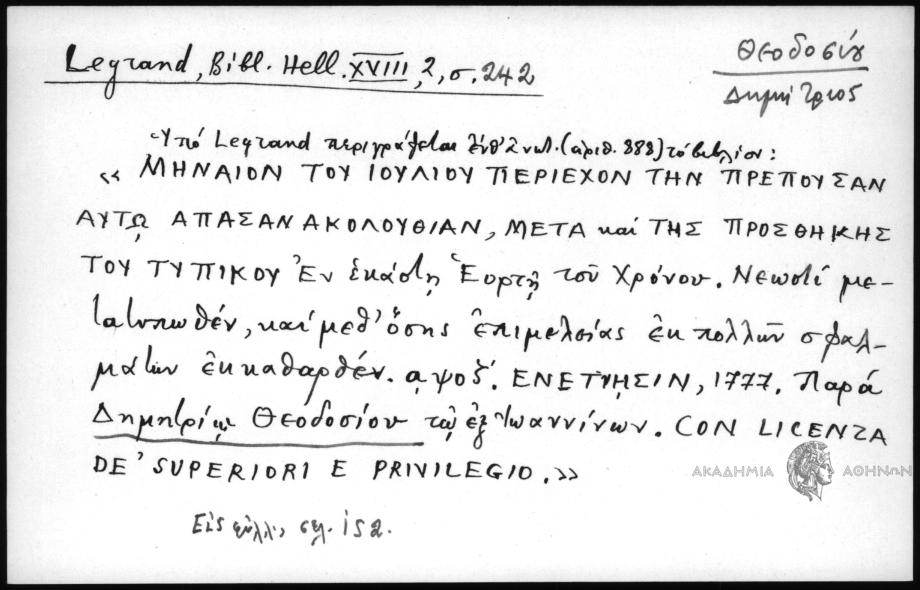 Legrand, Bibl. Hell. XVIII, 2, σ. 242
Θεοδοσίου
Δημήτριος
Ὑπό Legrand περιγράφεται (ἀριθ. 888) τό βιβλίον:
« ΜΗΝΑΙΟΝ ΤΟΥ ΙΟΥΛΙΟΥ ΠΕΡΙΕΧΟΝ ΤΗΝ ΠΡΕΠΟΥΣΑΝ
ΑΥΤῼ ΑΠΑΣΑΝ ΑΚΟΛΟΥΘΙΑΝ, ΜΕΤΑ καί ΤΗΣ ΠΡΟΣΘΗΚΗΣ
ΤΟΥ ΤΥΠΙΚΟΥ Ἐν ἑκάστῃ Ἑορτῇ τοῦ Χρόνου. Νεωστί με-
τατυπωθέν, καί μεθ' ὅσης ἐπιμελείας ἐκ πολλῶν σφαλ-
μάτων ἐκκαθαρθέν. αψοζ'. ΕΝΕΤΙΗΣΙΝ, 1777. Παρά
Δημητρίῳ Θεοδοσίου τῷ ἐξ Ἰωαννίνων. CON LICENZA
DE' SUPERIORI E PRIVILEGIO.»
ΑΚΑΔΗΜΙΑ ΑΘΗΝΩΝ
Εἰς φύλλ., σελ. 152.